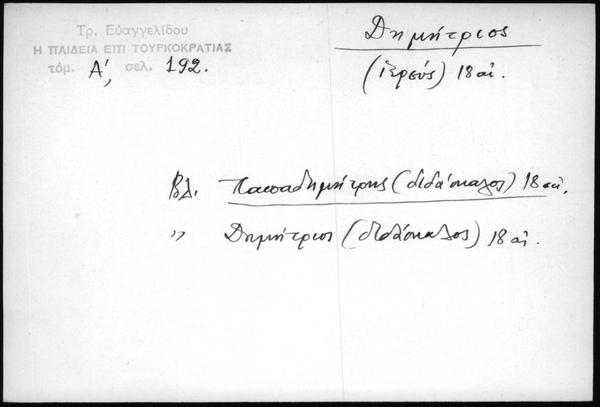 Τρ. Εὐαγγελίδου
Η ΠΑΙΔΕΙΑ ΕΠΙ ΤΟΥΡΚΟΚΡΑΤΙΑΣ
τόμ. Α΄, σελ. 192.
Δημήτριος
(ἱερεύς) 18 αἰ.
Βλ. Παπαδημήτρης (διδάσκαλος) 18 αἰ.
" Δημήτριος (διδάσκαλος) 18 αἰ.